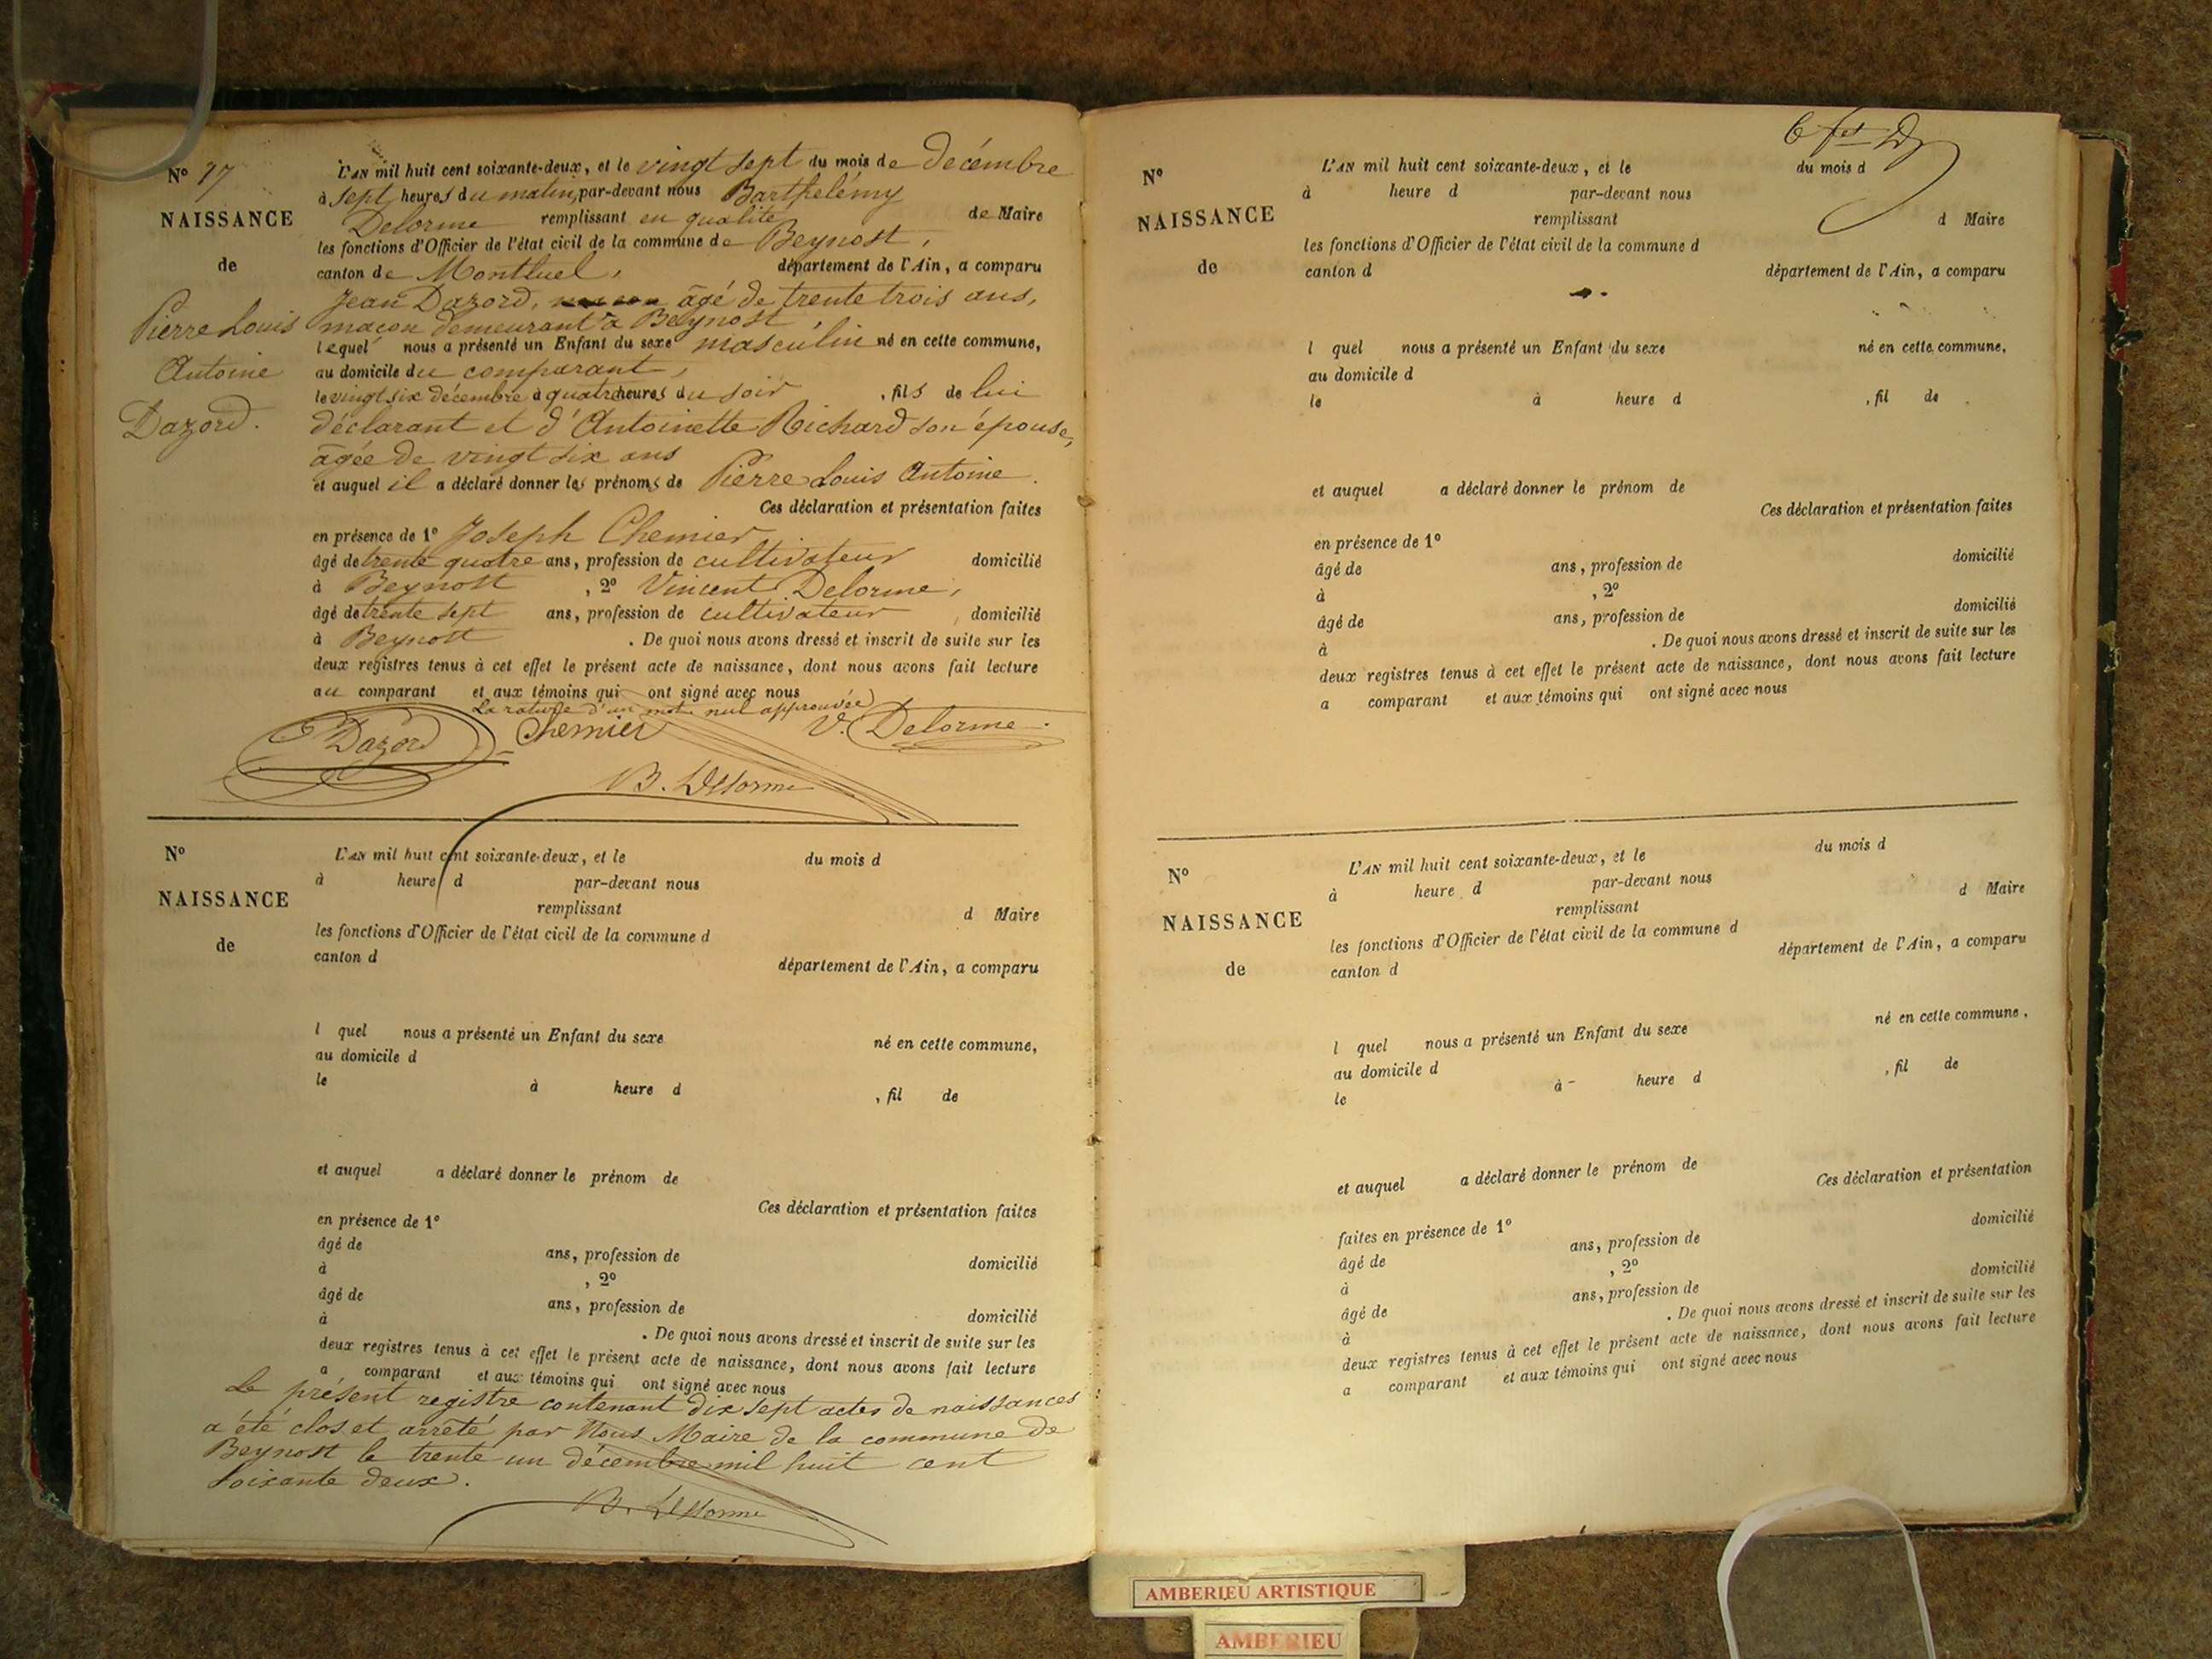 N° 17
NAISSANCE
de
Pierre Louis
Antoine
Dazord.
L'AN mil huit cent soixante-deux, et le vingt sept du mois de décembre
à sept heures du matin, par-devant nous Barthelémy
Delorme remplissant en qualité de Maire
les fonctions d'Officier de l'état civil de la commune de Beynost,
canton de Montluel, département de l'Ain, a comparu
Jean Dazord, âgé de trente trois ans,
maçon demeurant à Beynost,
lequel nous a présenté un Enfant du sexe masculin né en cette commune,
au domicile du comparant,
le vingt six décembre à quatre heures du soir, fils de lui
déclarant et d'Antoinette Richard son épouse,
âgée de vingt six ans
et auquel il a déclaré donner les prénoms de Pierre Louis Antoine.
Ces déclaration et présentation faites
en présence de 1° Joseph Chemier
âgé de trente quatre ans, profession de cultivateur domicilié
à Beynost, 2° Vincent Delorme,
âgé de trente sept ans, profession de cultivateur, domicilié
à Beynost. De quoi nous avons dressé et inscrit de suite sur les
deux registres tenus à cet effet le présent acte de naissance, dont nous avons fait lecture
au comparant et aux témoins qui ont signé avec nous
La rature d'un mot nul approuvée
Dazord Chemier V. Delorme.
B. Delorme
N°
NAISSANCE
de
L'AN mil huit cent soixante-deux, et le du mois d
à heure d par-devant nous
remplissant d Maire
les fonctions d'Officier de l'état civil de la commune d
canton d département de l'Ain, a comparu
l quel nous a présenté un Enfant du sexe né en cette commune,
au domicile d
le à heure d , fil de
et auquel a déclaré donner le prénom de
Ces déclaration et présentation faites
en présence de 1°
âgé de ans, profession de domicilié
à , 2°
âgé de ans, profession de domicilié
à . De quoi nous avons dressé et inscrit de suite sur les
deux registres tenus à cet effet le présent acte de naissance, dont nous avons fait lecture
a comparant et aux témoins qui ont signé avec nous
Le présent registre contenant dix sept actes de naissances
a été clos et arrêté par Nous Maire de la commune de
Beynost le trente un décembre mil huit cent
soixante deux.
B. Delorme
N°
NAISSANCE
de
L'AN mil huit cent soixante-deux, et le du mois d
à heure d par-devant nous
remplissant d Maire
les fonctions d'Officier de l'état civil de la commune d
canton d département de l'Ain, a comparu
l quel nous a présenté un Enfant du sexe né en cette commune,
au domicile d
le à heure d , fil de
et auquel a déclaré donner le prénom de
Ces déclaration et présentation faites
en présence de 1°
âgé de ans, profession de domicilié
à , 2°
âgé de ans, profession de domicilié
à . De quoi nous avons dressé et inscrit de suite sur les
deux registres tenus à cet effet le présent acte de naissance, dont nous avons fait lecture
a comparant et aux témoins qui ont signé avec nous
N°
NAISSANCE
de
L'AN mil huit cent soixante-deux, et le du mois d
à heure d par-devant nous
remplissant d Maire
les fonctions d'Officier de l'état civil de la commune d
canton d département de l'Ain, a comparu
l quel nous a présenté un Enfant du sexe né en cette commune,
au domicile d
le à heure d , fil de
et auquel a déclaré donner le prénom de
Ces déclaration et présentation
faites en présence de 1°
âgé de ans, profession de domicilié
à , 2°
âgé de ans, profession de domicilié
à . De quoi nous avons dressé et inscrit de suite sur les
deux registres tenus à cet effet le présent acte de naissance, dont nous avons fait lecture
a comparant et aux témoins qui ont signé avec nous
AMBERIEU ARTISTIQUE
AMBERIEU